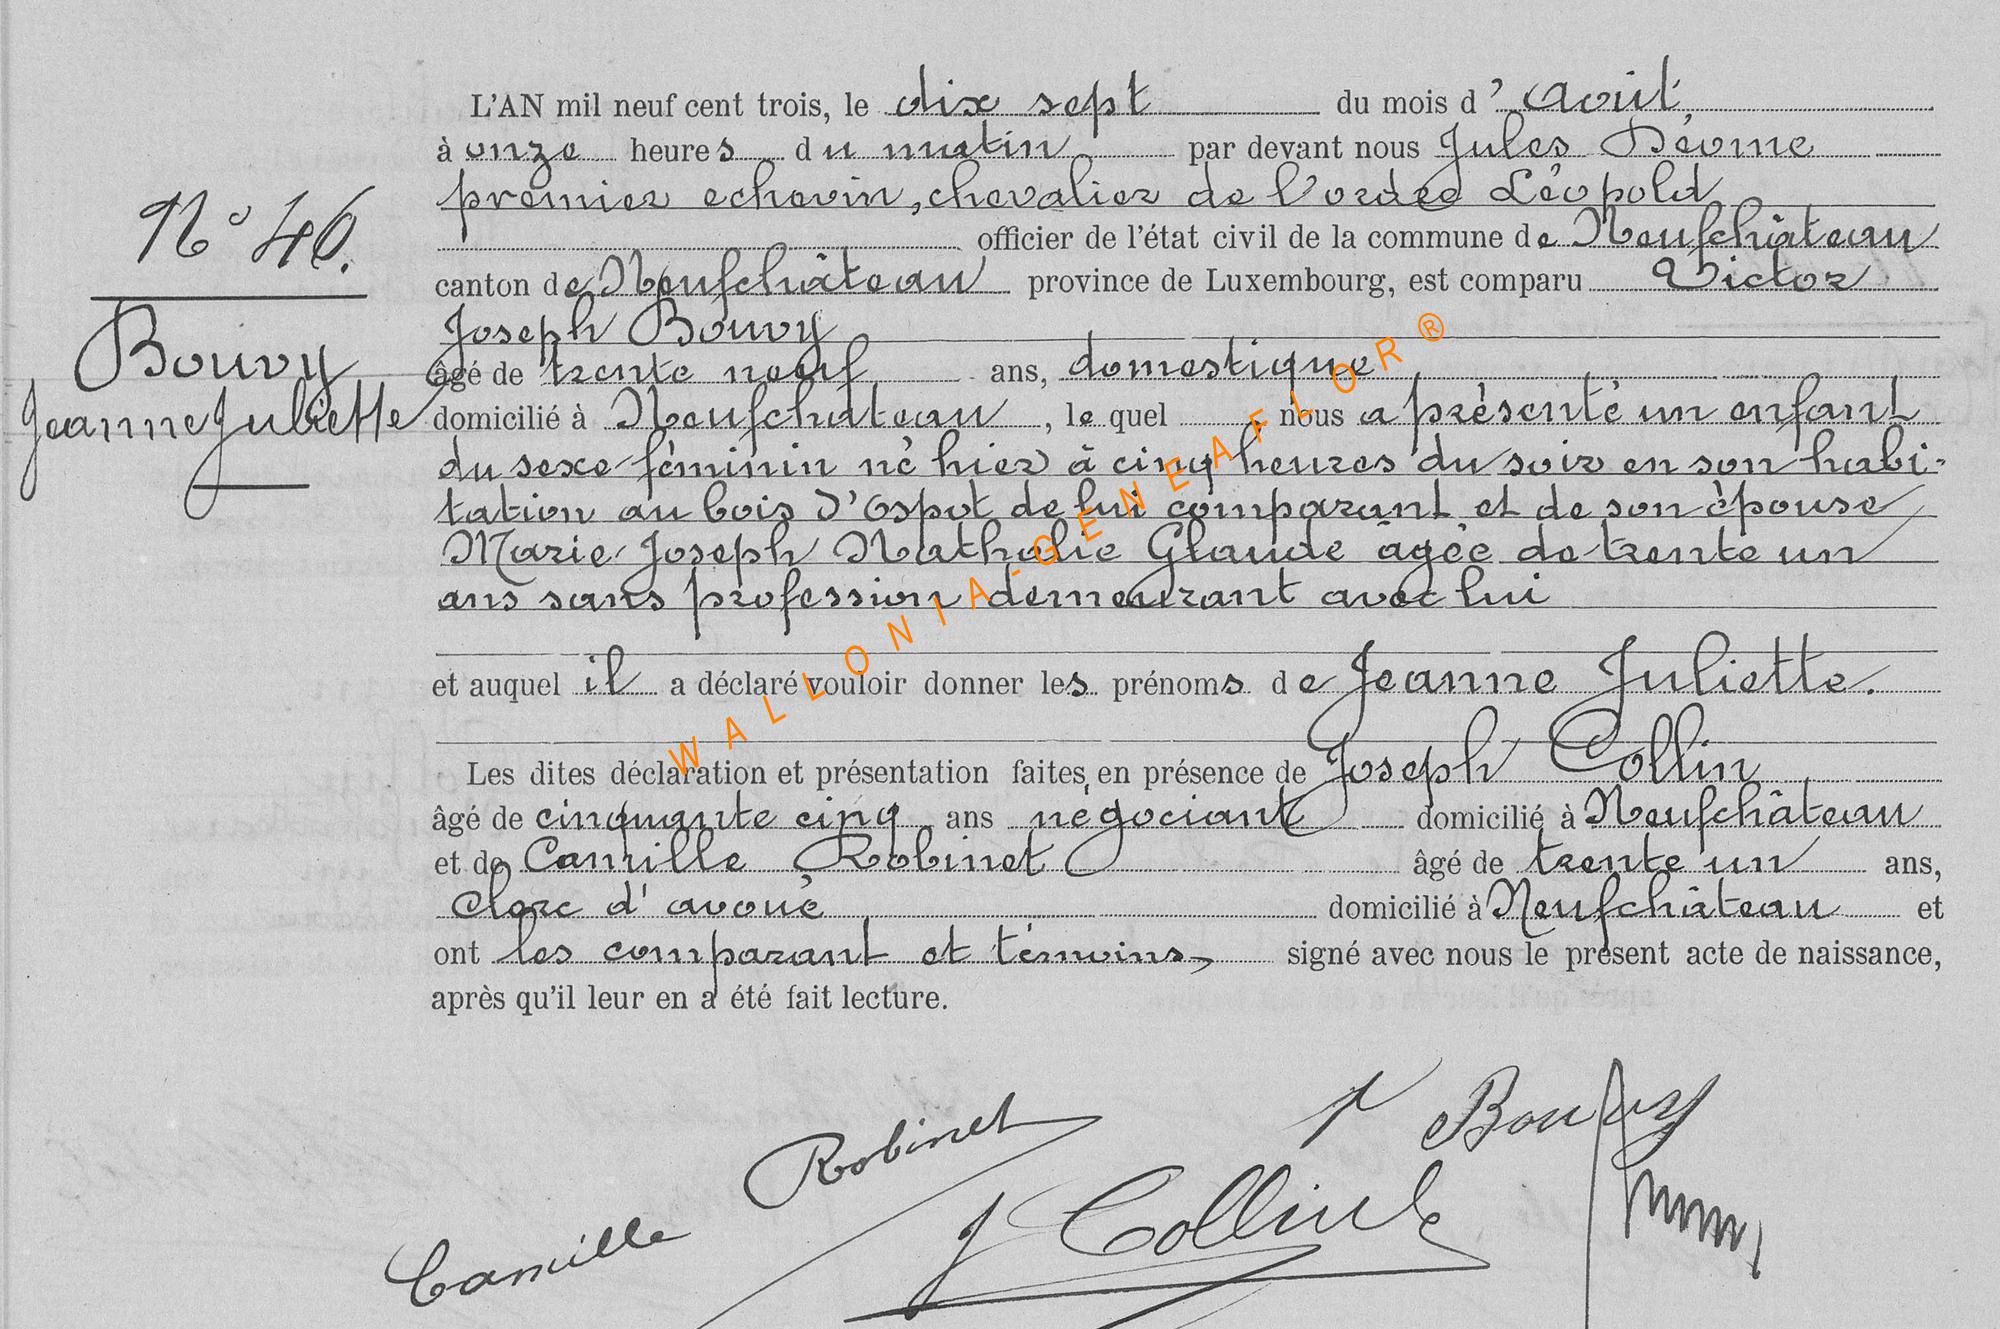 L'AN mil neuf cent trois, le dix sept du mois d'Août
à onze heures du matin par devant nous Jules Déome
premier echevin, chevalier de l'ordre Léopold
officier de l'état civil de la commune de Neufchâteau
N° 46.
canton de Neufchâteau province de Luxembourg, est comparu Victor
Joseph Bouvy
Bouvy
âgé de trente neuf ans, domestique
Jeanne Juliette
domicilié à Neufchateau, le quel nous a présenté un enfant
du sexe féminin né hier à cinq heures du soir en son habi-
tation au bois d'Ospot de lui comparant et de son épouse
Marie Joseph Nathalie Glaude âgée de trente un
ans sans profession demeurant avec lui
et auquel il a déclaré vouloir donner les prénoms de Jeanne Juliette.
Les dites déclaration et présentation faites en présence de Joseph Collin
âgé de cinquante cinq ans négociant domicilié à Neufchâteau
et de Camille Robinet âgé de trente un ans,
Clerc d'avoué domicilié à Neufchâteau et
ont les comparant et témoins, signé avec nous le présent acte de naissance,
après qu'il leur en a été fait lecture.
V Bouvy
Camille Robinet
J Collin
WALLONIA-GENEAFLOR®